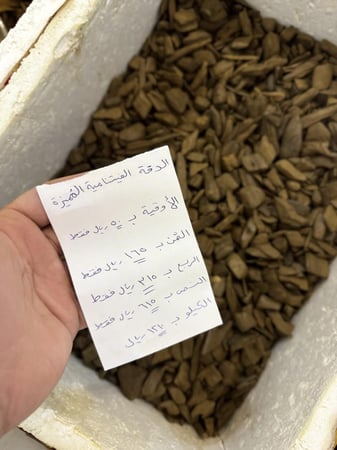 الدقة الفيتنامية المميزة
الأوقية ب ٥٠ ريال فقط
الثمن ب ١٦٥ ريال فقط
الربع ب ٣١٥ ريال فقط
النصف ب ٦١٥ ريال فقط
الكيلو ب ١٢٠٠ ريال